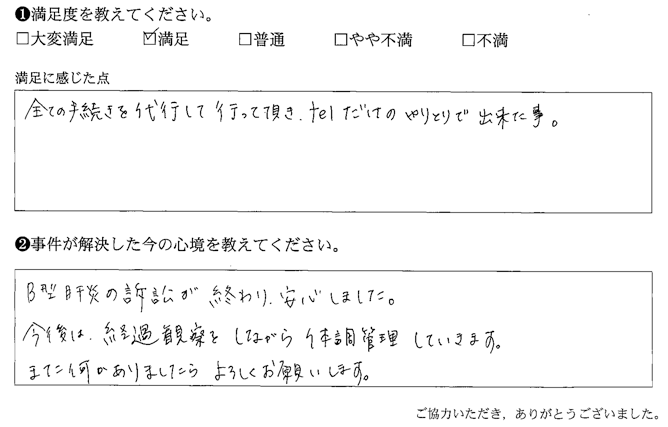 ❶満足度を教えてください。
□大変満足 ☑満足 □普通 □やや不満 □不満
満足に感じた点
全ての手続きを代行して行って頂き、telだけのやりとりで出来た事。
❷事件が解決した今の心境を教えてください。
B型肝炎の訴訟が終わり、安心しました。
今後は、経過観察をしながら体調管理していきます。
また何かありましたらよろしくお願いします。
ご協力いただき，ありがとうございました。